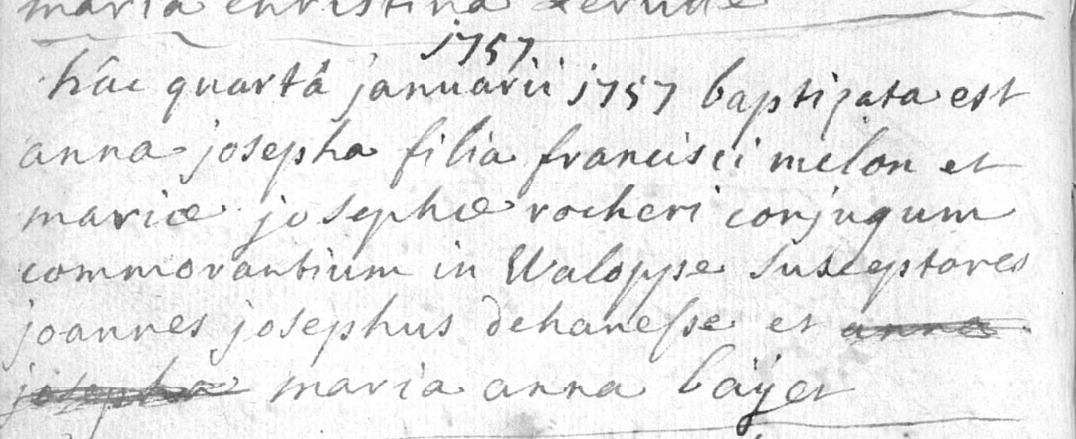 maria christina
1757
hâc quartâ januarii 1757 baptisata est
anna josepha filia francisci melon et
mariæ josephæ rocheri conjugum
commorantium in Waloppe susceptores
joannes josephus dehanesse et anna
josepha maria anna bäÿet